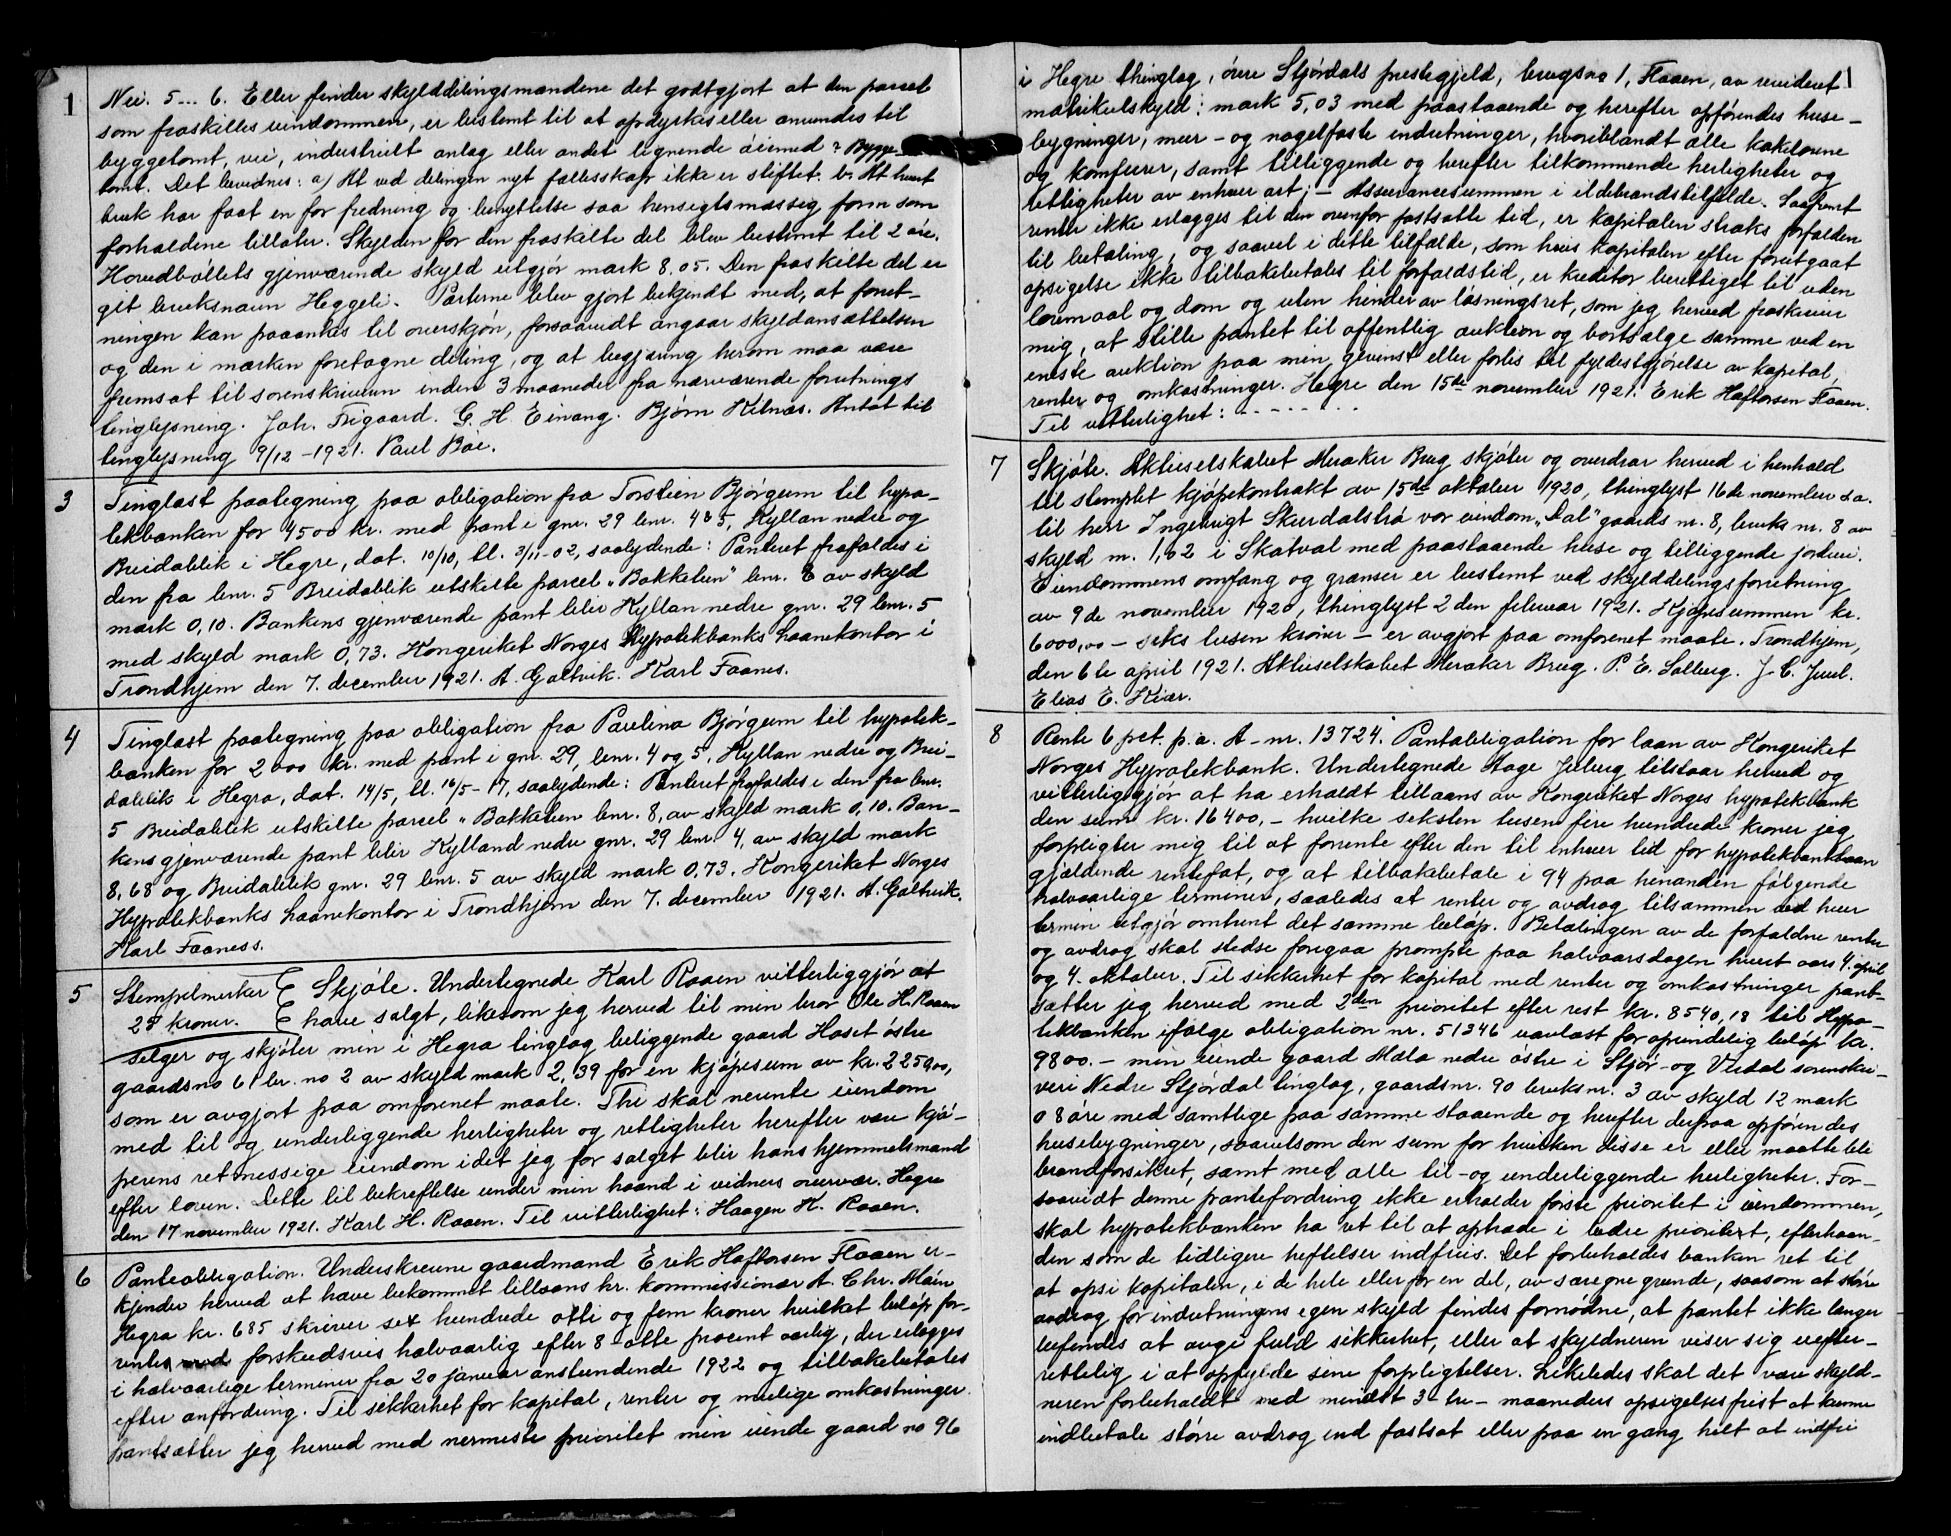 1
Nei. 5 ... 6. Eller finder skylddelingsmændene det godtgjort at den parcel
som fraskilles eiendommen, er bestemt til at opdyrkes eller anvendes til
byggetomt, vei, industrielt anlæg eller andet lignende øiemed? Bygge-
tomt. Det bevidnes: a) At ved delingen nyt fællesskap ikke er stiftet. b. At hvert
bruk har faat en for fredning og benyttelse saa hensigtsmæssig form som
forholdene tillater. Skylden for den fraskilte del blev bestemt til 2 øre.
Hovedbøllets gjenværende skyld utgjør mark 8,05. Den fraskilte del er
git bruksnavn Heggeli. Parterne blev gjort bekjendt med, at forret-
ningen kan paaankes til overskjøn, forsaavidt angaar skyldansættelsen
og den i marken foretagne deling, og at begjæring herom maa være
fremsat til sorenskriveren inden 3 maaneder fra nærværende forretnings
tinglysning. Joh. Trigaard. G. H. Einang. Bjørn Kilnæs. Antat til
tinglysning 9/12 - 1921. Paul Bøe.
3
Tinglæst paategning paa obligation fra Torstein Bjørgum til hypo-
tekbanken for 4500 kr. med pant i gnr. 29 bnr. 4 & 5, Kyllan nedre og
Breidablik i Hegre, dat. 10/10, tl. 3/11-02, saalydende: Panteret frafaldes i
den fra bnr. 5 Breidablik utskilte parcel "Bakkelien" bnr. 8 av skyld
mark 0,10. Bankens gjenværende pant blir Kyllan nedre gnr. 29 bnr. 5
med skyld mark 0,73. Kongeriket Norges Hypotekbanks laanekontor i
Trondhjem den 7. december 1921. A. Galtvik. Karl Faanes.
4
Tinglæst paategning paa obligation fra Paulina Bjørgum til hypotek-
banken for 2000 kr. med pant i gnr. 29, bnr. 4 og 5, Kyllan nedre og Brei-
dablik i Hegra, dat. 14/5, tl. 16/5 - 17, saalydende: Panteret frafaldes i den fra bnr.
5 Breidablik utskilte parcel "Bakkelien bnr. 8, av skyld mark 0,10. Ban-
kens gjenværende pant blir Kylland nedre gnr. 29 bnr. 4, av skyld mark
8,68 og Breidablik gnr. 29 bnr. 5 av skyld mark 0,73. Kongeriket Norges
Hypotekbanks laanekontor i Trondhjem den 7. december 1921. A. Galtvik.
Karl Faaness.
5
Stempelmerker Skjøte. Undertegnede Karl Raaen vitterliggjør at
28 kroner. have solgt, likesom jeg herved til min bror Ole H. Raaen
selger og skjøter min i Hegra tinglag beliggende gaard Haset østre
gaardsno 61 br. no 2 av skyld mark 2,39 for en kjøpesum av kr. 2250,00,
som er avgjort paa omforenet maate. Thi skal nevnte eiendom
med til og underliggende herligheter og rettigheter herefter være kjø-
perens retmessige eiendom idet jeg for salget blir hans hjemmelsmand
efter loven. Dette til bekreftelse under min haand i vidners overvær. Hegre
den 17 november 1921. Karl H. Raaen. Til vitterlighet: Haagen K. Raaen.
6
Panteobligation. Underskrevne gaardmand Erik Haftorsen Flaaen er-
kjender herved at have bekommet tillaans hr. kommissionær A. Chr. Moen
Hegra kr. 685 skriver sex hundrede otti og fem kroner hvilket beløp for-
rentes forskudsvis halvaarlig efter 8 - otte procent aarlig, der erlægges
i halvaarlige terminer fra 20 januar anstundende 1922 og tilbakebetales
efter anfordring. Til sikkerhet for kapital, renter og mulige omkostninger
pantsætter jeg herved med nermeste prioritet min eiende gaard no 96
i Hegre thinglag, øvre Stjørdals prestegjeld, brugsno 1, Flaaen, av revideret
matrikulskyld: mark 5,03 med paastaaende og herefter opførendes huse-
bygninger, muur- og nagelfaste indretninger, hvoriblandt alle kakelovne
og komfurer, samt tilliggende og herefter tilkommende herligheter og
rettigheter av enhver art; - Assurancesummen i ildebrandstilfælde. Saafremt
renter ikke erlægges til den ovenfor fastsatte tid, er kapitalen straks forfalden
til betaling, og saavel i dette tilfælde, som hvis kapitalen efter forutgaat
opsigelse ikke tilbakebetales til forfaldstid, er kreditor berettiget til uden
lovmaal og dom og uten hinder av løsningsret, som jeg herved fraskriver
mig, at stille pantet til offentlig auktion og bortsælge samme ved en
eneste auktion paa min gevinst eller forlis til fyldestgjørelse av kapital,
renter og omkostninger. Hegre den 15de november 1921. Erik Haftorsen Flaaen.
Til vitterlighet: - - - - - - - -
7
Skjøte. Aktieselskabet Meraker Brug skjøter og overdrar herved i henhold
til stemplet kjøpekontrakt av 15de oktober 1920, thinglyst 16de november s.a.
til herr Ingebrigt Skurdalstrø vor eiendom "Dal" gaards nr. 8, bruks nr. 8 av
skyld m. 1,02 i Skatval med paastaaende huse og tilliggende jordvei.
Eiendommens omfang og grænser er bestemt ved skylddelingsforretning
av 9de november 1920, thinglyst 2den februar 1921. Kjøpesummen kr.
6000,00 - seks tusen kroner - er avgjort paa omforenet maate. Trondhjem,
den 6te april 1921. Aktieselskabet Meraker Brug. P. E. Solberg. J. C. Juul.
Elias C. Kiær.
8
Rente 6 pct. p.a. A - nr. 13724. Pantobligation for laan av Kongeriket
Norges Hypotekbank. Undertegnede Aage Julberg tilstaar herved og
vitterliggjør at ha erholdt tillaans av Kongeriket Norges hypotekbank
den sum kr. 16400,- hvilke seksten tusen fire hundrede kroner jeg
forpligter mig til at forrente efter den til enhver tid for hypotekbanklaan
gjældende rentefot, og at tilbakebetale i 94 paa hinanden følgende
halvaarlige terminer, saaledes at renter og avdrag tilsammen ved hver
termin utgjør omtrent det samme beløp. Betalingen av de forfaldne renter
og avdrag skal stedse foregaa prompte paa halvaarsdagen hvert aars 4. april
og 4. oktober. Til sikkerhet for kapital med renter og omkostninger pant-
sætter jeg herved med 2den prioritet efter rest kr. 8540,18 til Hypo-
tekbanken ifølge obligation nr. 51346 uavlæst for oprindelig beløp kr.
9800.- min eiende gaard Mæla nedre østre i Stjør- og Værdal sorenskri-
veri Nedre Stjørdal tinglag, gaardsnr. 90 bruksnr. 3 av skyld 12 mark
08 øre med samtlige paa samme staaende og herefter derpaa opførendes
husebygninger, saavelsom den sum for hvilken disse er eller maatte bli
brandforsikret, samt med alle til- og underliggende herligheter. For-
saavidt denne pantefordring ikke erholder første prioritet i eiendommen,
skal hypotekbanken ha ret til at optræde i bedre prioritet, efterhaan-
den som de tidligere heftelser indfries. Det forbeholdes banken ret til
at opsi kapitalen, i de hele eller for en del, av særegne grunde, saasom at større
avdrag for indretningens egen skyld findes fornødne, at pantet ikke længer
befindes at avgi fuld sikkerhet, eller at skyldneren viser sig uefter-
rettelig i at opfylde sine forpligtelser. Likeledes skal det være skyld-
neren forbeholdt med mindst 3 - tre - maaneders opsigelsesfrist at kunne
indbetale større avdrag end fastsat eller paa en gang helt at indfri